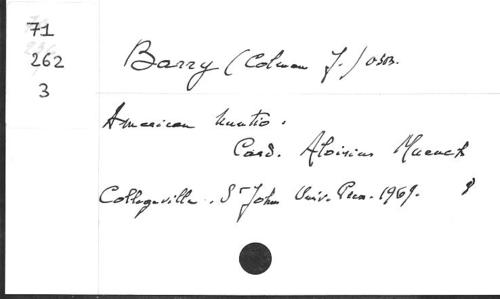 71
262
3
Barry (Colman J.) OSB.
American Nuntio.
Card. Aloisius Muench
Collegeville. St John Univ. Press. 1969.